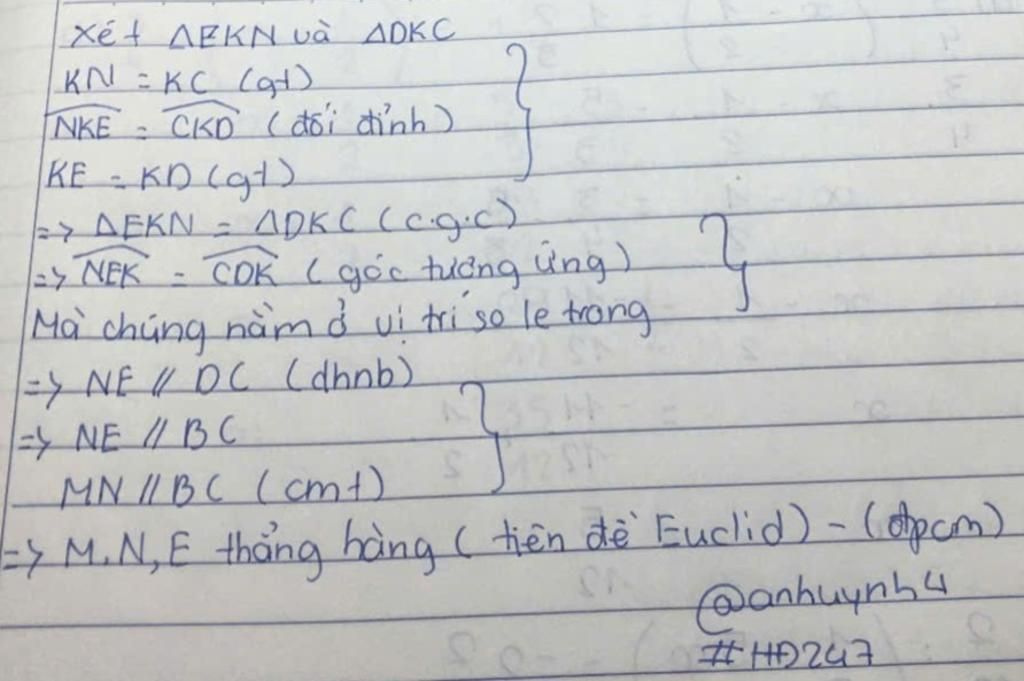 Xét ΔEKN và ΔDKC
KN = KC (gt)
NKE = CKD (đối đỉnh)
KE = KD (gt)
=> ΔEKN = ΔDKC (c.g.c)
=> NEK = CDK (góc tương ứng)
Mà chúng nằm ở vị trí so le trong
=> NE // DC (dhnb)
=> NE // BC
MN // BC (cmt)
=> M, N, E thẳng hàng (tiên đề Euclid) - (đpcm)
@anhuynh4
#HĐ247